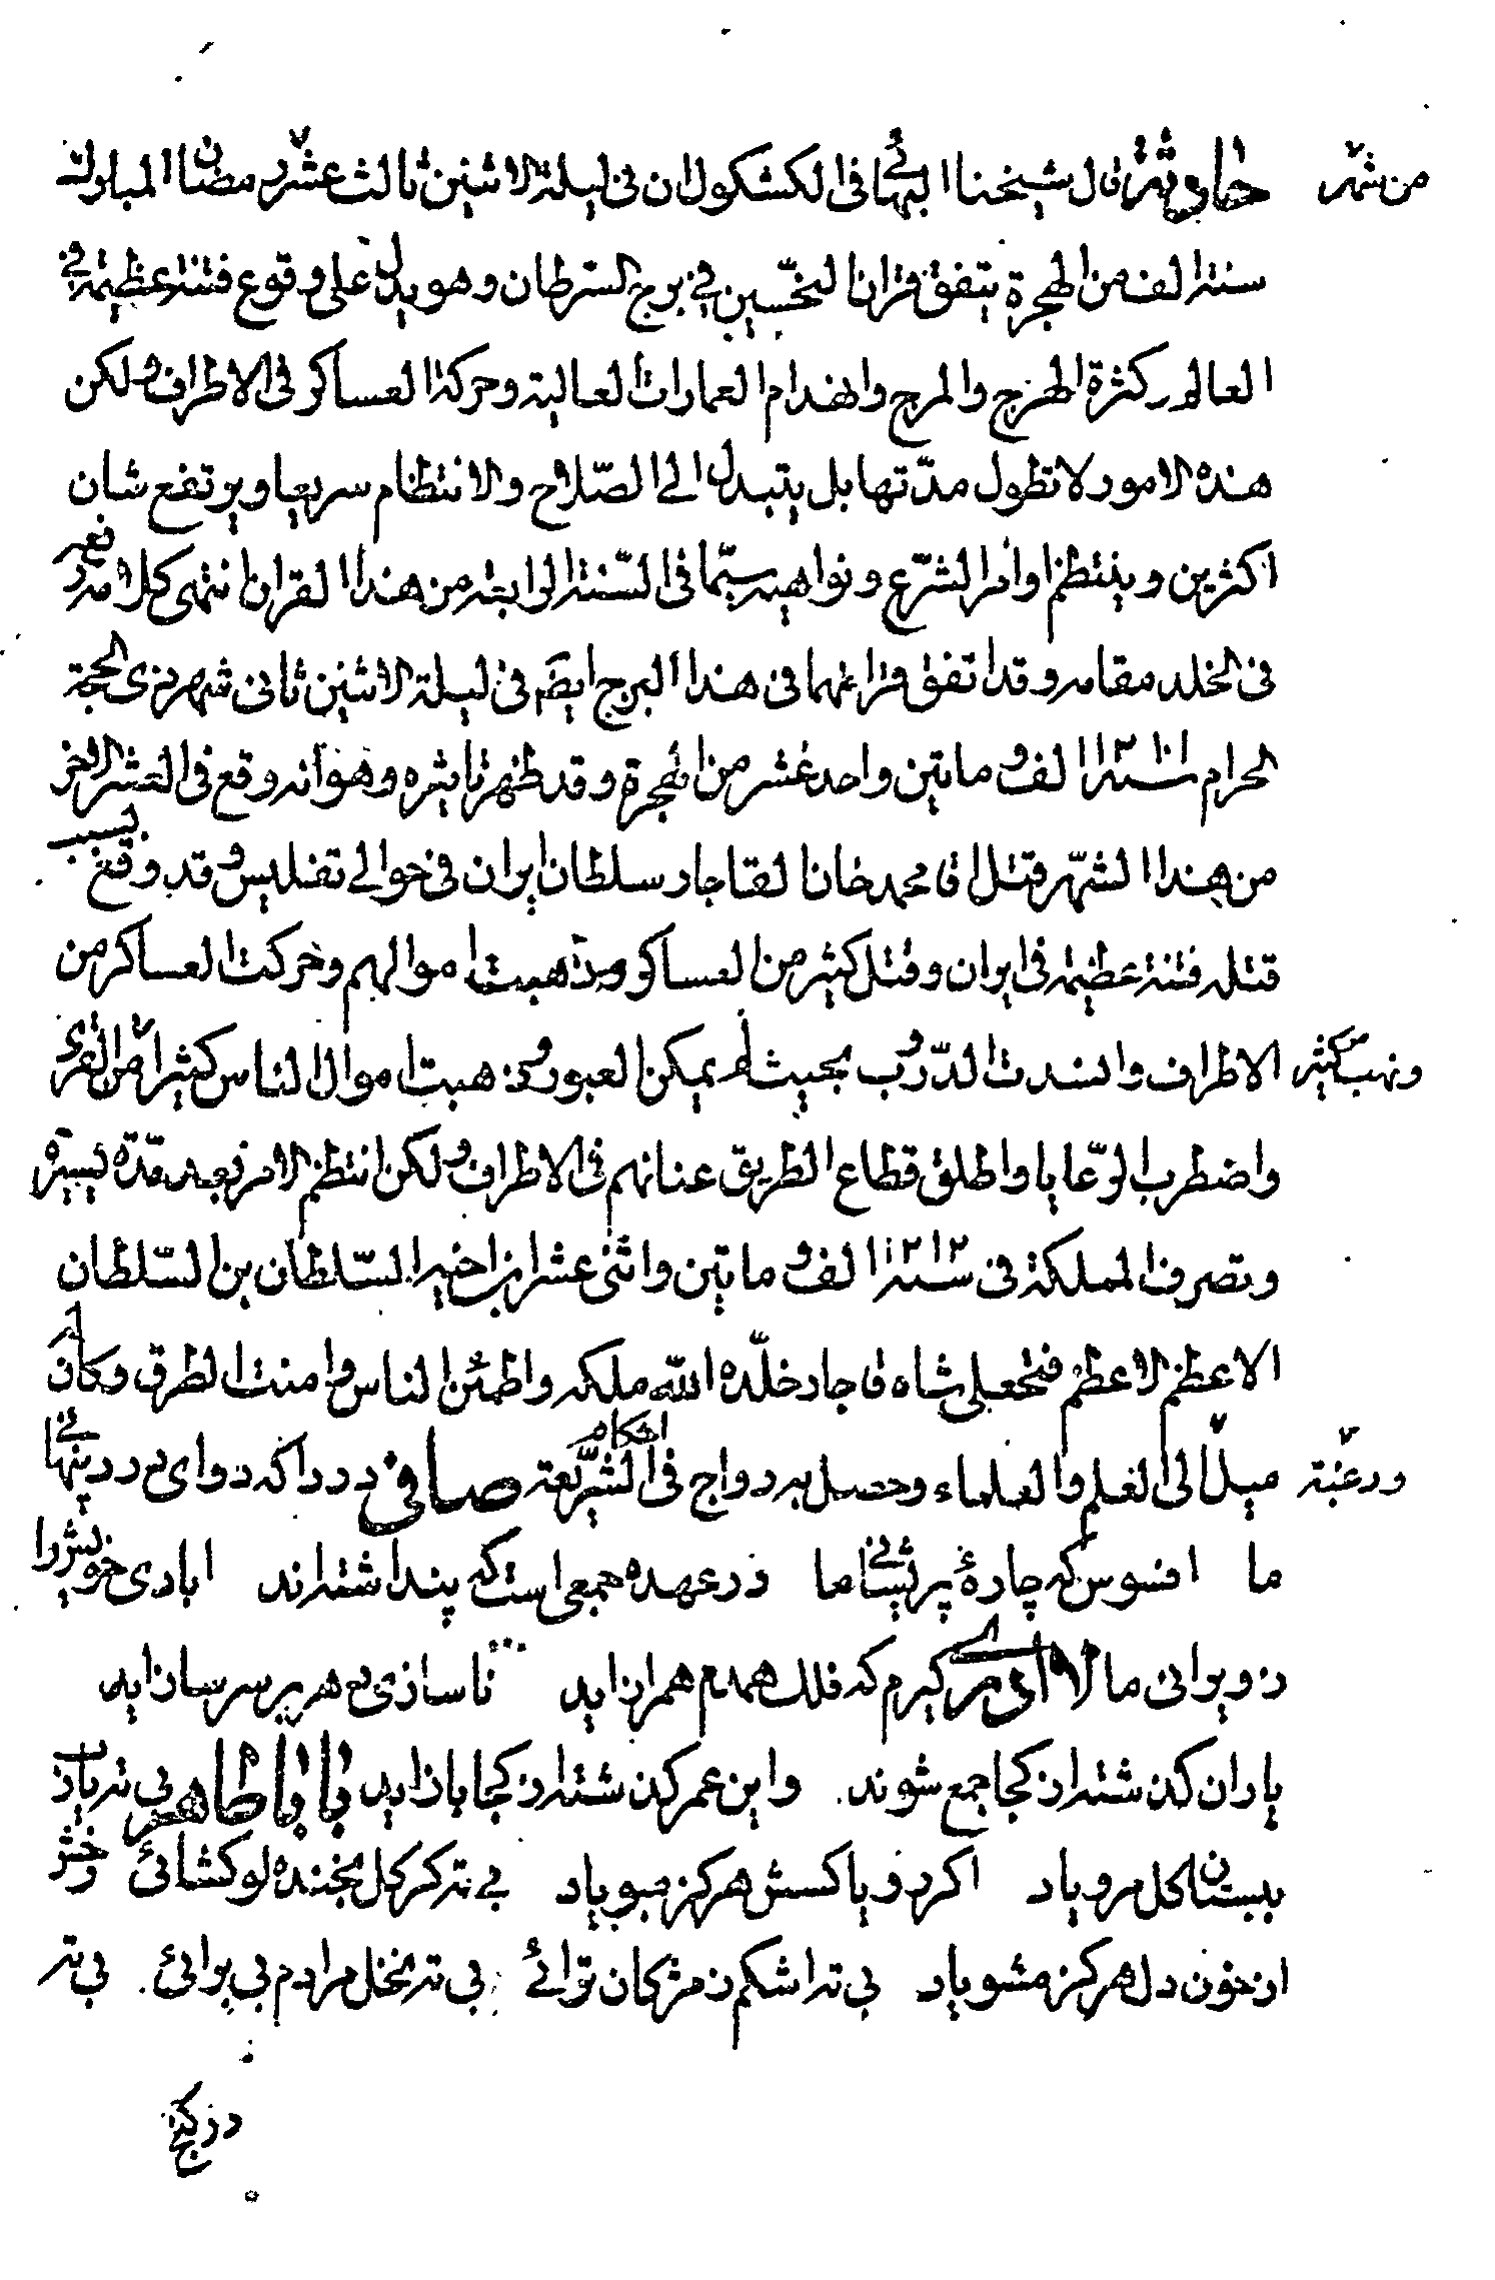 حادثة قال شيخنا البهائي في الكشكول ان في ليلة الاثنين ثالث عشر من شهر رمضان المبارك
سنة الف من الهجرة يتفق قران النحسين في برج السرطان وهو يدل على وقوع فتنة عظيمة في
العالم وكثرة الهرج والمرج وانهدام العمارات العالية وحركة العساكر في الاطراف ولكن
هذه الامور لا تطول مدتها بل يتبدل الى الصلاح والانتظام سريعا ويرتفع شان
اكثرين وينتظم اوامر الشرع ونواهيه سيما في السنة الرابعة من هذا القران انتهى كلامه رفع
في الخلد مقامه وقد اتفق قرانهما في هذا البرج ايضا في ليلة الاثنين ثاني شهر ذي الحجة
الحرام سنة ١٢١١ الف و ماتين واحد عشر من الهجرة وقد ظهر تاثيره وهو انه وقع في العشر الاخر
من هذا الشهر قتل اقا محمد خان القاجار سلطان ايران في حوالي تفليس و قد وقع بسبب
قتله فتنة عظيمة في ايران وقتل كثير من العساكر وذهبت اموالهم وحركت العساكر من
الاطراف وانسدت الدروب بحيث لم يمكن العبور و ذهبت اموال الناس كثيرا ونهب كثير من القرى
واضطرب الرعايا واطلق قطاع الطريق عنانهم في الاطراف ولكن انتظم الامر بعد مدة يسيرة
وتصرف المملكة في سنة ١٢١٢ الف و ماتين واثني عشر ابن اخيه السلطان بن السلطان
الاعظم الاعظم فتحعلي شاه قاجار خلده الله ملكه واطمئن الناس و امنت الطرق وكان له
ميل ورغبة الى العلم والعلماء وحصل به رواج في احكام الشريعة صافي دردا كه دواى درد پنهاني
ما افسوس كه چارهٔ پريشاني ما در عهده جمعي است كه پنداشته اند ابادي خويش را
در ويراني ما لا ادرى كيرم كه فلك همدم همراز ايد ناسازي دهر بر سر ساز ايد
ياران كذشته از كجا جمع شوند واين عمر كذشته از كجا باز ايد بابا طاهر بي ته يارب
ببستان كل مروياد اكر رويا كسش هركز مبوياد بي ته كر كل بخنده لو كشائي رخش
از خون دل هركز مشوياد بي ته اشكم ز مژكان ترائي بي ته نخل مرادم بي برائي بي ته
در كنج